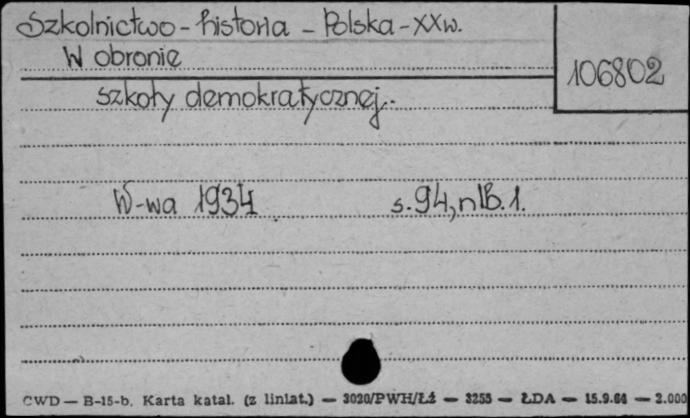 Szkolnictwo - historia - Polska - XX w.
W obronie
106802
szkoły demokratycznej.
W-wa 1934 s. 94, nlb. 1.
CWD — B-15-b. Karta katal. (z liniat.) — 3020/PWH/Łź — 3255 — ŁDA — 15.9.64 — 2.000